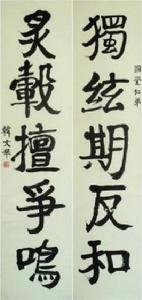 仁弟
獨絃期反和
炙轂擅爭鳴
韓文舉